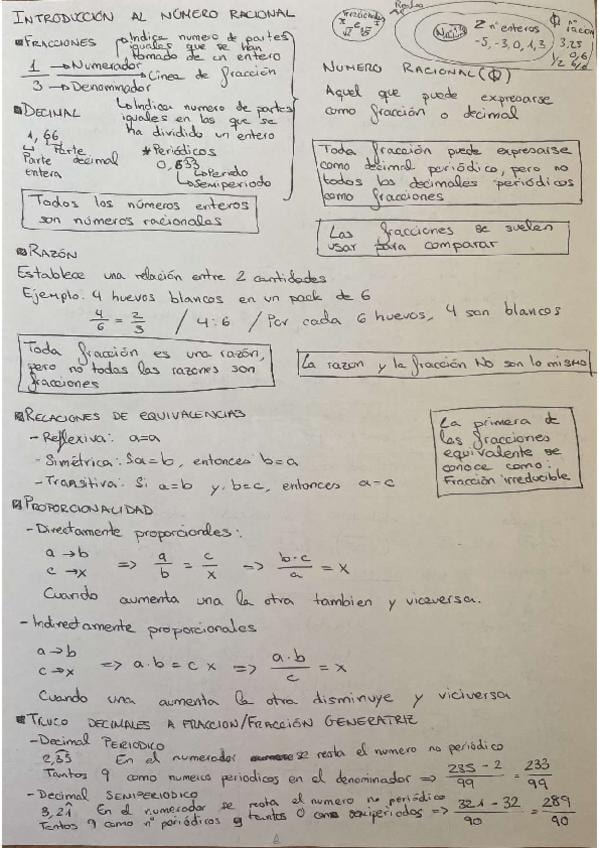 INTRODUCCIÓN AL NÚMERO RACIONAL
FRACCIONES → Indica numero de partes
iguales que se han
tomado de un entero
1 → Numerador
→ Línea de fracción
3 → Denominador
↳ Indica numero de partes
iguales en los que se
ha dividido un entero
DECIMAL
1,66
Parte entera
Parte decimal
* Periódicos
0,633
↳ Periodo
↳ Semiperiodo
Todos los números enteros
son números racionales
Reales
Irracionales
π e
√2 √5
Z nº enteros
-5, -3, 0, 1, 3
ℚ nº racion
3,25
0,6
1/2
NUMERO RACIONAL (ℚ)
Aquel que puede expresarse
como fracción o decimal
Toda fracción puede expresarse
como decimal periódico, pero no
todos los decimales periódicos
como fracciones
Las fracciones se suelen
usar para comparar
RAZÓN
Establece una relación entre 2 cantidades
Ejemplo: 4 huevos blancos en un pack de 6
4/6 = 2/3 / 4:6 / Por cada 6 huevos, 4 son blancos
Toda fracción es una razón,
pero no todas las razones son
fracciones
La razon y la fracción NO son lo mismo
RELACIONES DE EQUIVALENCIAS
- Reflexiva: a=a
- Simétrica: Si a=b, entonces b=a
- Transitiva: Si a=b y b=c, entonces a=c
La primera de
las fracciones
equivalente se
conoce como:
Fracción irreducible
PROPORCIONALIDAD
- Directamente proporcionales:
a → b
c → x
=> a/b = c/x => b·c/a = x
Cuando aumenta una la otra tambien y viceversa.
- Indirectamente proporcionales
a → b
c → x
=> a·b = c x => a·b/c = x
Cuando una aumenta la otra disminuye y viciversa
TRUCO DECIMALES A FRACCION/FRACCIÓN GENERATRIZ
- Decimal PERIODICO
2,35 En el numerador se resta el numero no periódico
Tantos 9 como numeros periodicos en el denominador => 235 - 2/99 = 233/99
- Decimal SEMIPERIODICO
3,21 En el numerador se resta el numero no periódico
Tantos 9 como nº periódicos y tantos 0 como semiperiodos => 321 - 32/90 = 289/90